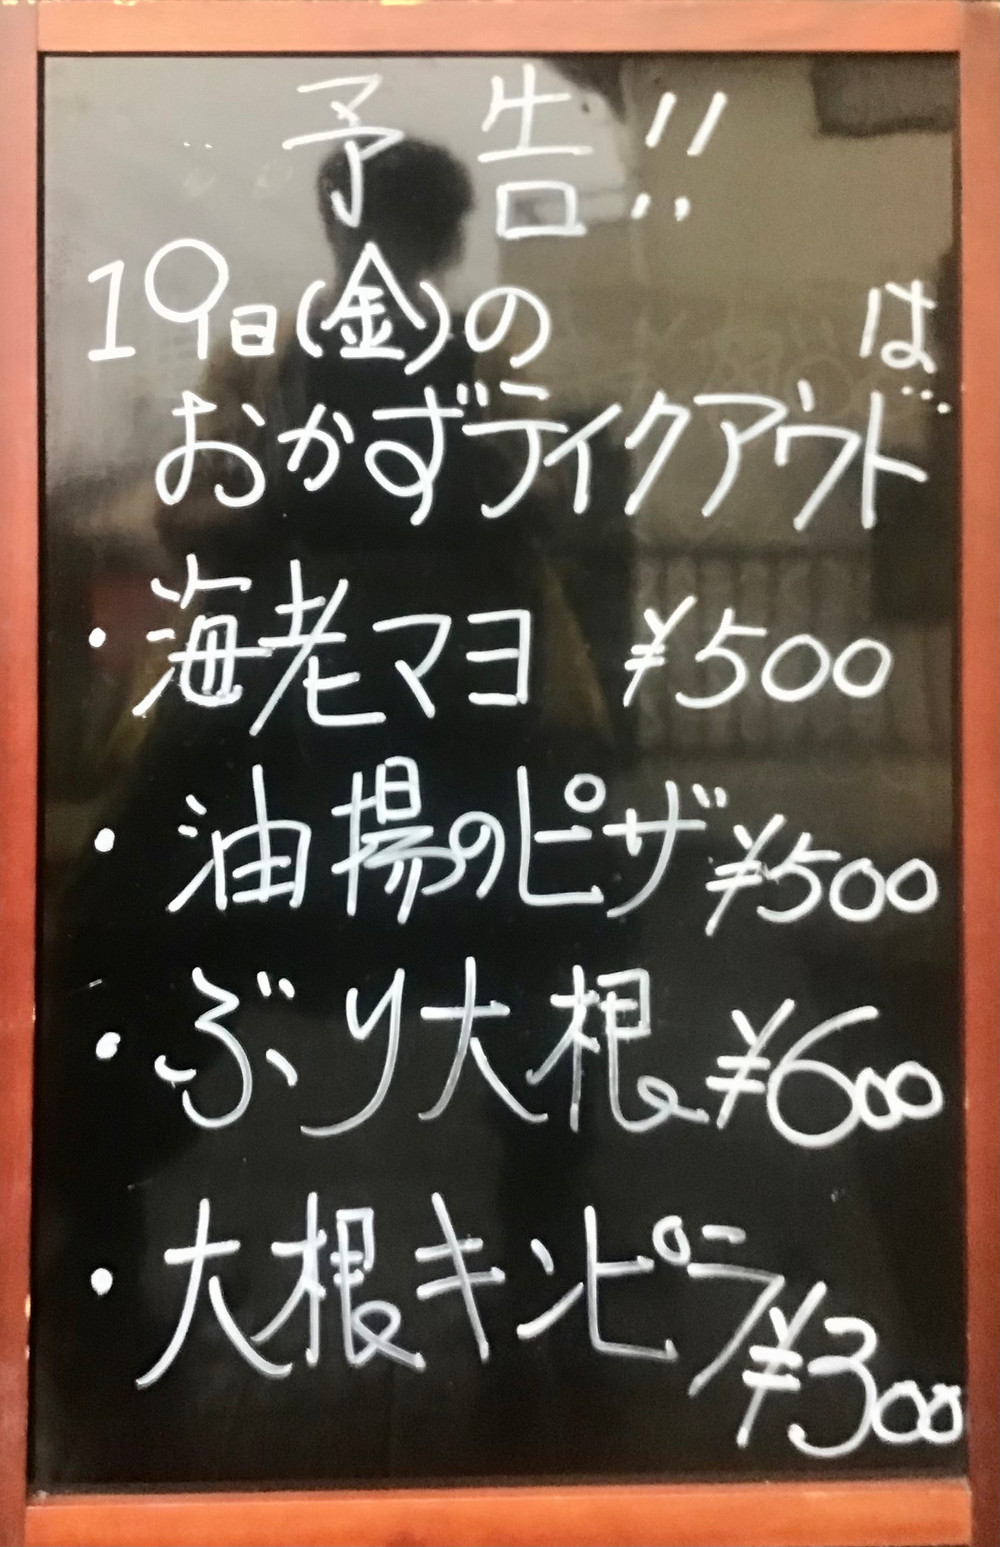 予告!!
19日(金)の は
おかずテイクアウト
・海老マヨ ¥500
・油揚のピザ ¥500
・ぶり大根 ¥600
・大根キンピラ ¥300